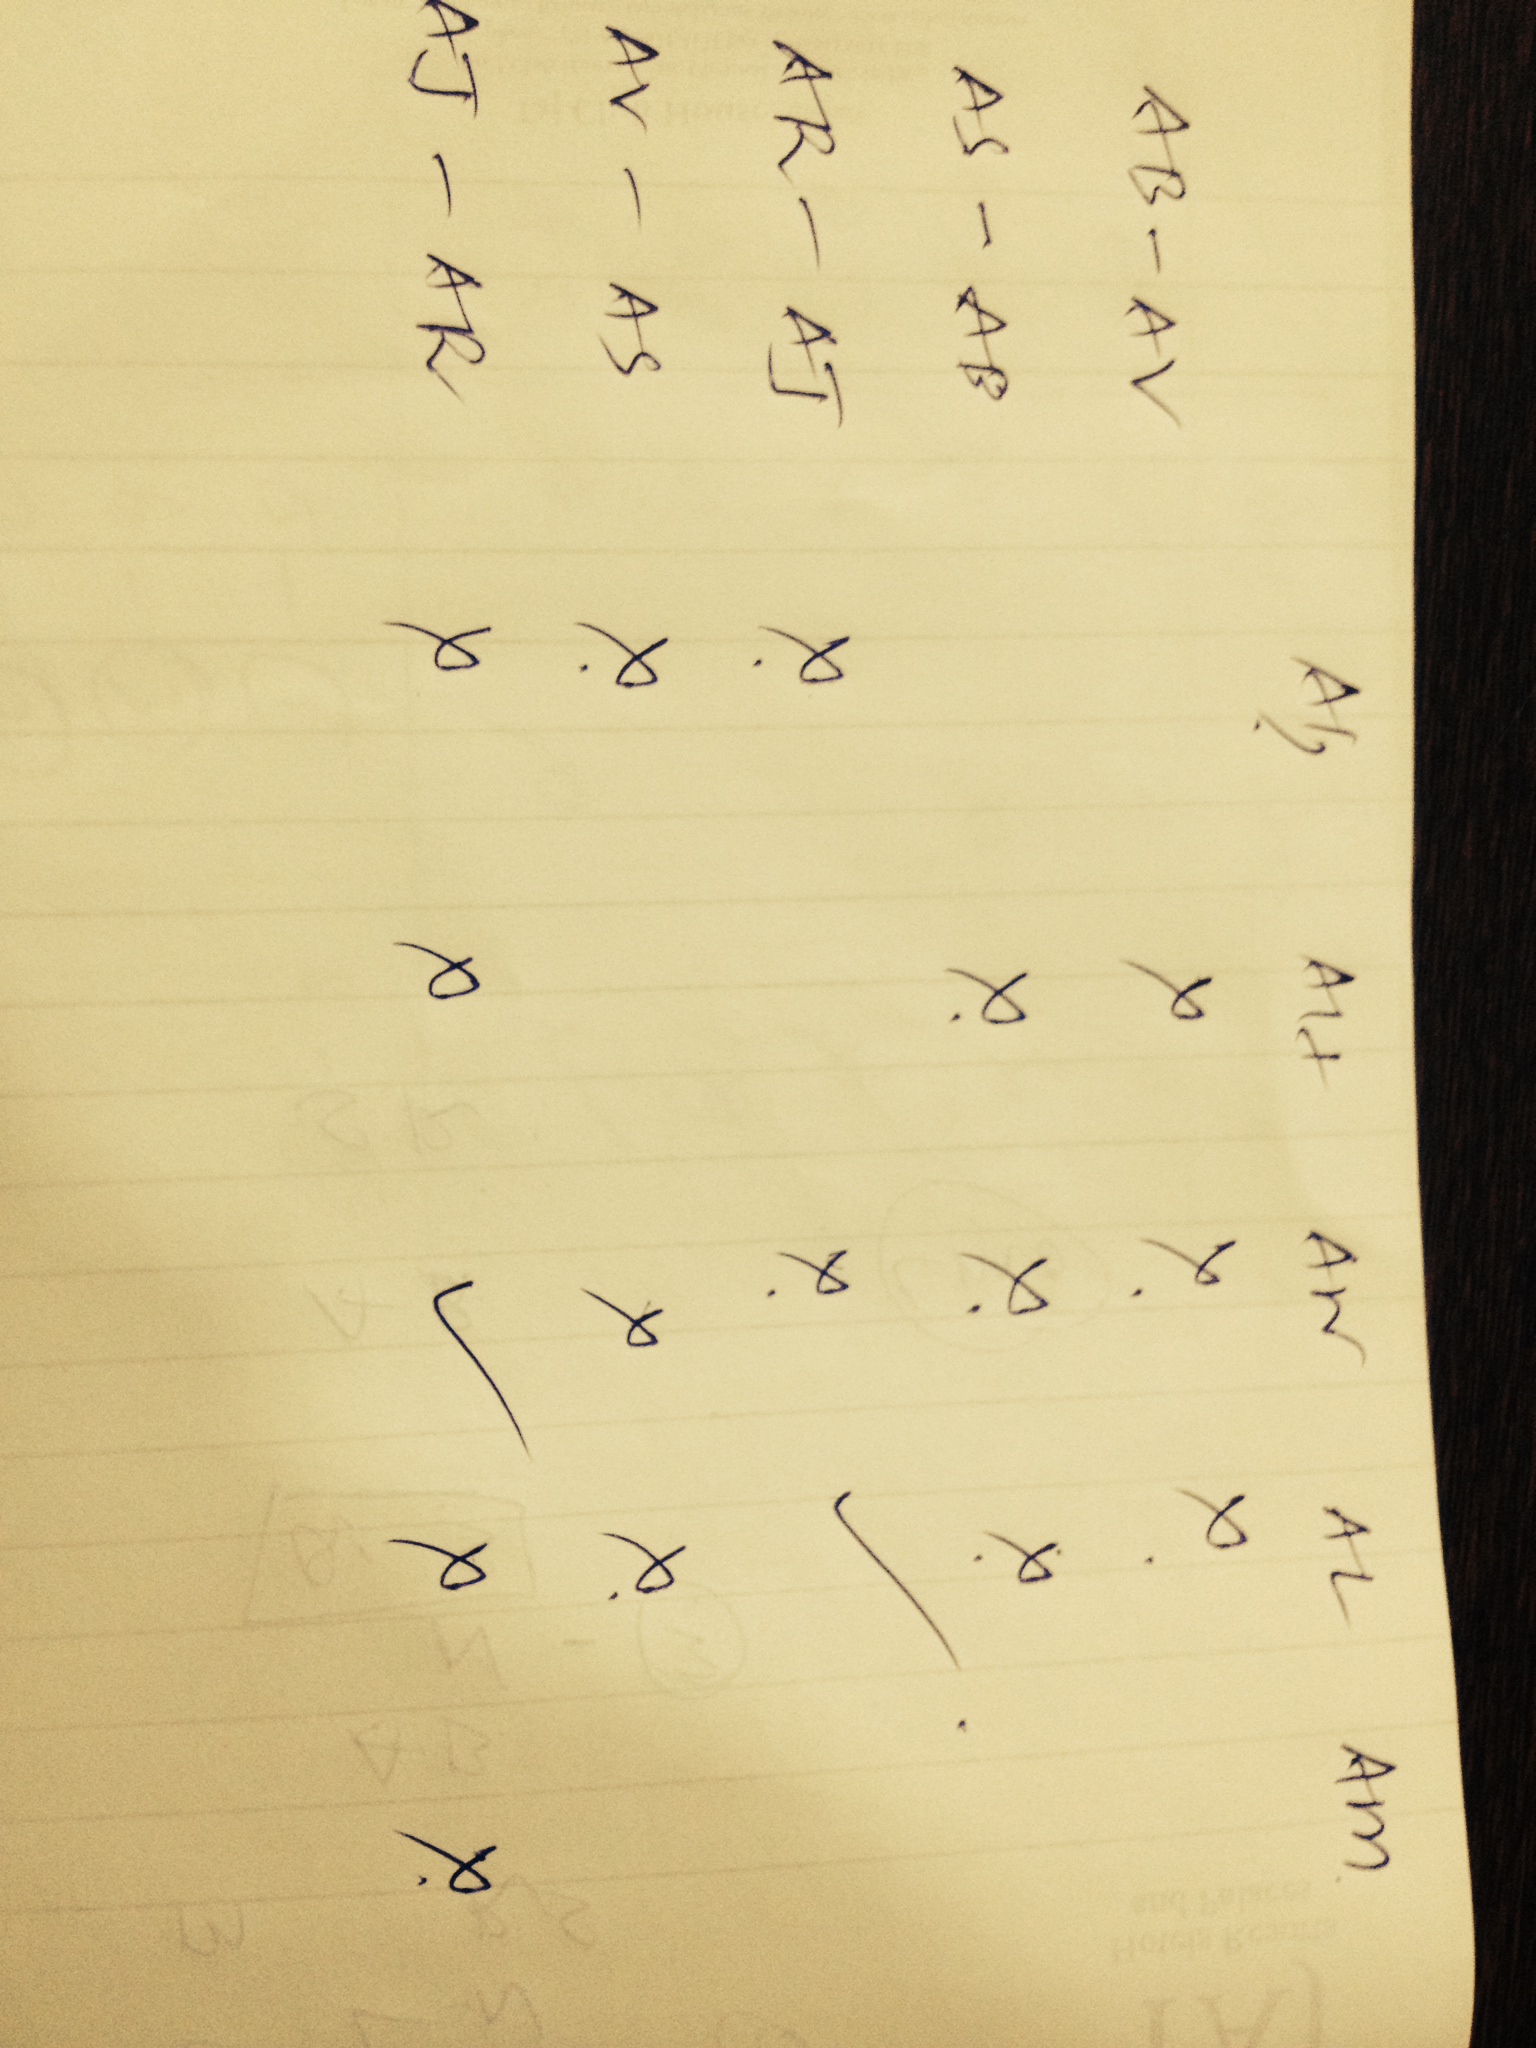 AM
AB - AV x x. x.
AS - AB x. x. x.
AR - AJ x. x. ✓
AV - AS x. x x.
AJ - AR x x ✓ x x.